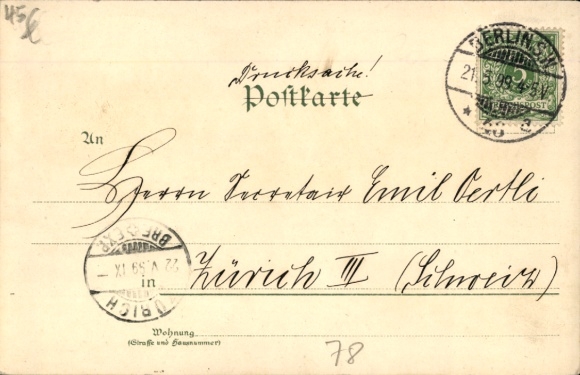 45
Drucksache!
Postkarte
BERLIN S.W.
21.5.99.4-5N.
5
REICHSPOST
* 48 a
An
Herrn Secretair Emil Oertli
BRF. EXP.
22.V.99.IX-
ZÜRICH
in Zürich III (Schweiz)
Wohnung
(Straße und Hausnummer)
78